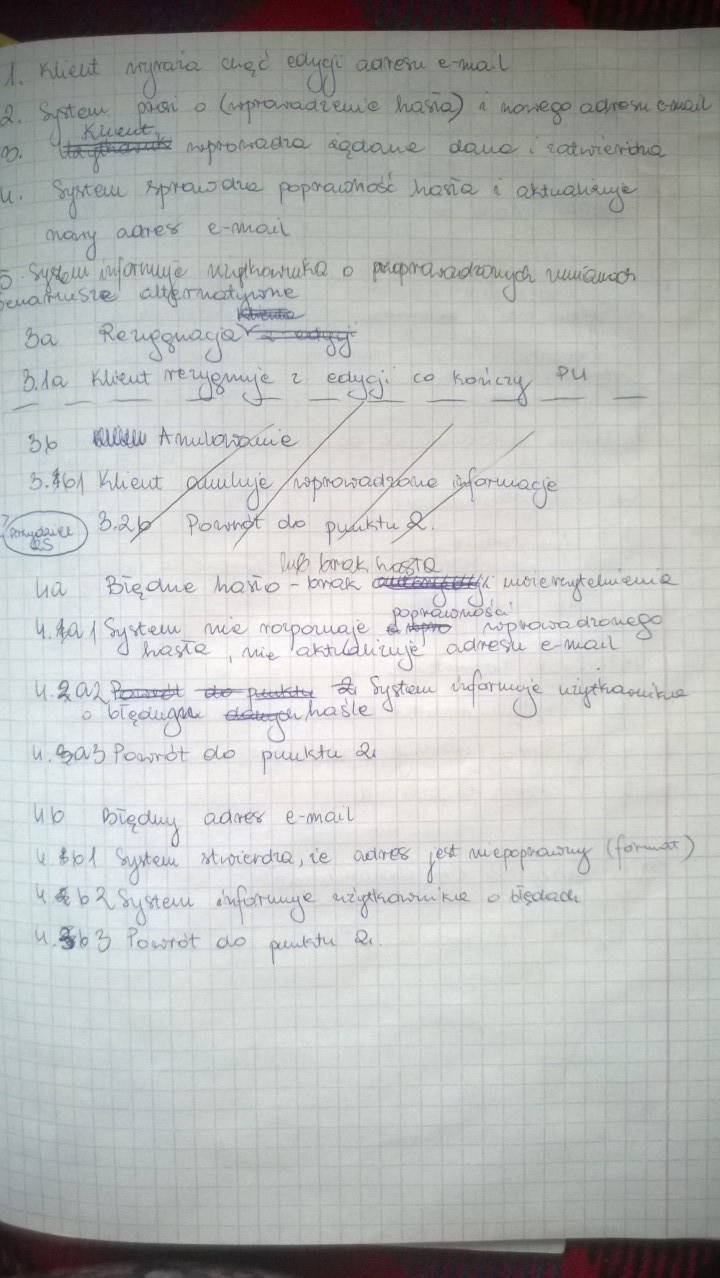 1. Klient wyraża chęć edycji adresu e-mail
2. System prosi o (wprowadzenie hasła) i nowego adresu e-mail
Klient
3. wprowadza żądane dane i zatwierdza
4. System sprawdza poprawność hasła i aktualizuje
nowy adres e-mail
5. System informuje użytkownika o przeprowadzonych zmianach
scenariusze alternatywne
3a Rezygnacja z edycji
3.1a Klient rezygnuje z edycji co kończy PU
3b Anulowanie
3.b1 Klient anuluje wprowadzone informacje
3.2b Powrót do punktu 2.
lub brak hasła
4a Błędne hasło - brak uwierzytelnienia
poprawności
4.a1 System nie rozpoznaje wprowadzonego
hasła, nie aktualizuje adresu e-mail
4.a2 Powrót do punktu 2 System informuje użytkownika
o błędnym danych haśle
4.a3 Powrót do punktu 2.
4b Błędny adres e-mail
4.b1 System stwierdza, że adres jest niepoprawny (format)
4.b2 System informuje użytkownika o błędach
4.b3 Powrót do punktu 2.